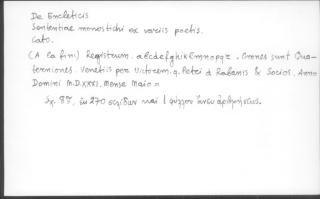 De Encleticis
Sententiae monostichi ex variis poetis.
Cato.
(A la fin:) Registrum. abcdefghiklmnopqr. Omnes sunt Qua-
terniones. Venetiis per Victorem. q. Petri d Rabanis & Socios. Anno
Domini M.D.XXXI. Mense Maio =
270 καὶ 1 φύλλον ἄνευ ἀριθμήσεως.